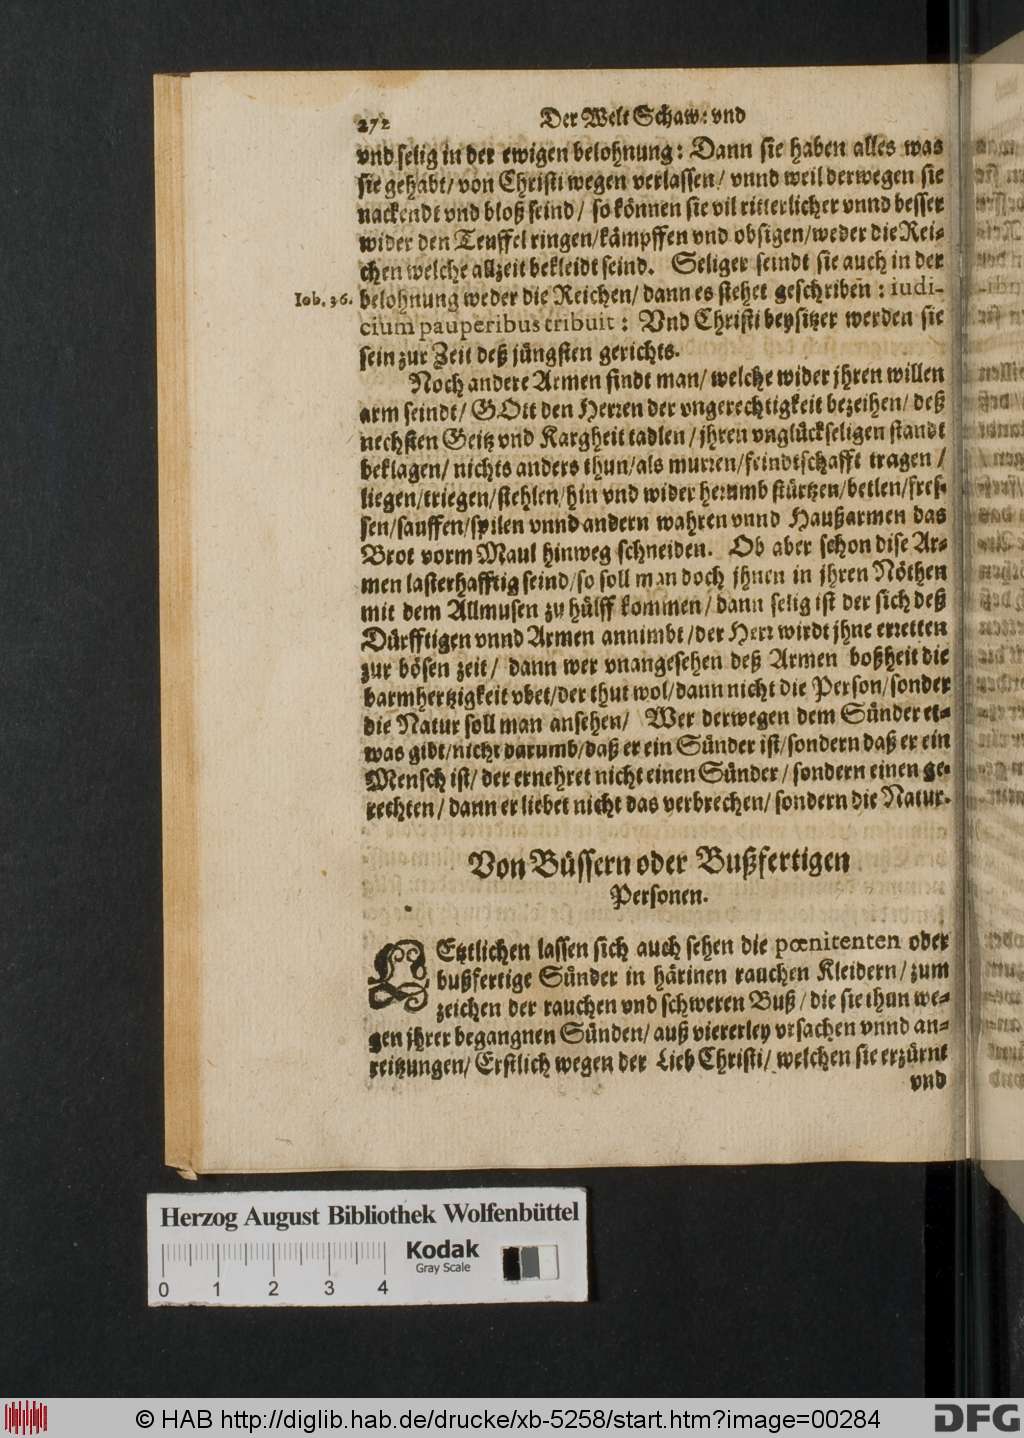 272 Der Welt Schaw: vnd
vnd selig in der ewigen belohnung: Dann sie haben alles was
sie gehabt/ von Christi wegen verlassen/ vnnd weil derwegen sie
nackendt vnd bloß seind/ so können sie vil ritterlicher vnnd besser
wider den Teuffel ringen/kämpffen vnd obsigen/weder die Rei-
chen welche allzeit bekleidt seind. Seliger seindt sie auch in der
Iob. 36. belohnung weder die Reichen/ dann es stehet geschriben: iudi-
cium pauperibus tribuit: Vnd Christi beysitzer werden sie
sein zur Zeit deß jüngsten gerichts.
Noch andere Armen findt man/ welche wider jhren willen
arm seindt/ GOtt den Herren der vngerechtigkeit bezeihen/ deß
nechsten Geitz vnd Kargheit tadlen/ jhren vnglückseligen standt
beklagen/ nichts anders thun/als murren/feindtschafft tragen/
liegen/triegen/stehlen/hin vnd wider herumb stürtzen/betlen/fres-
sen/sauffen/spilen vnnd andern wahren vnnd Haußarmen das
Brot vorm Maul hinweg schneiden. Ob aber schon dise Ar-
men lasterhafftig seind/so soll man doch jhnen in jhren Nöthen
mit dem Allmusen zu hülff kommen/ dann selig ist der sich deß
Dürfftigen vnnd Armen annimbt/der Herr wirdt jhne erretten
zur bösen zeit/ dann wer vnangesehen deß Armen boßheit die
barmhertzigkeit vbet/der thut wol/dann nicht die Person/sonder
die Natur soll man ansehen/ Wer derwegen dem Sünder et-
was gibt/nicht darumb/daß er ein Sünder ist/sondern daß er ein
Mensch ist/ der ernehret nicht einen Sünder/ sondern einen ge-
rechten/ dann er liebet nicht das verbrechen/ sondern die Natur.
Von Büssern oder Bußfertigen
Personen.
LEtztlichen lassen sich auch sehen die pœnitenten oder
bußfertige Sünder in härinen rauchen Kleidern/ zum
zeichen der rauchen vnd schweren Buß/ die sie thun we-
gen jhrer begangnen Sünden/ auß viererley vrsachen vnnd an-
reitzungen/ Erstlich wegen der Lieb Christi/ welchen sie erzürnt
vnd
Herzog August Bibliothek Wolfenbüttel
Kodak
Gray Scale
0 1 2 3 4
© HAB http://diglib.hab.de/drucke/xb-5258/start.htm?image=00284
DFG